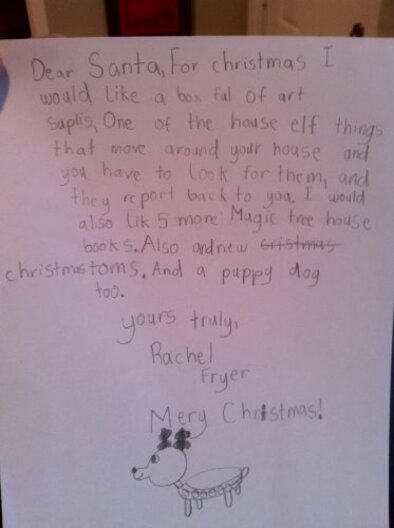 Dear Santa, For christmas I
would like a box ful of art
suplis, One of the house elf things
that move around your house and
you have to look for them, and
they report back to you. I would
also lik 5 more Magic tree house
books. Also andnew cristmas
christmastoms. And a puppy dog
too.
yours truly,
Rachel
Fryer
Mery Christmas!